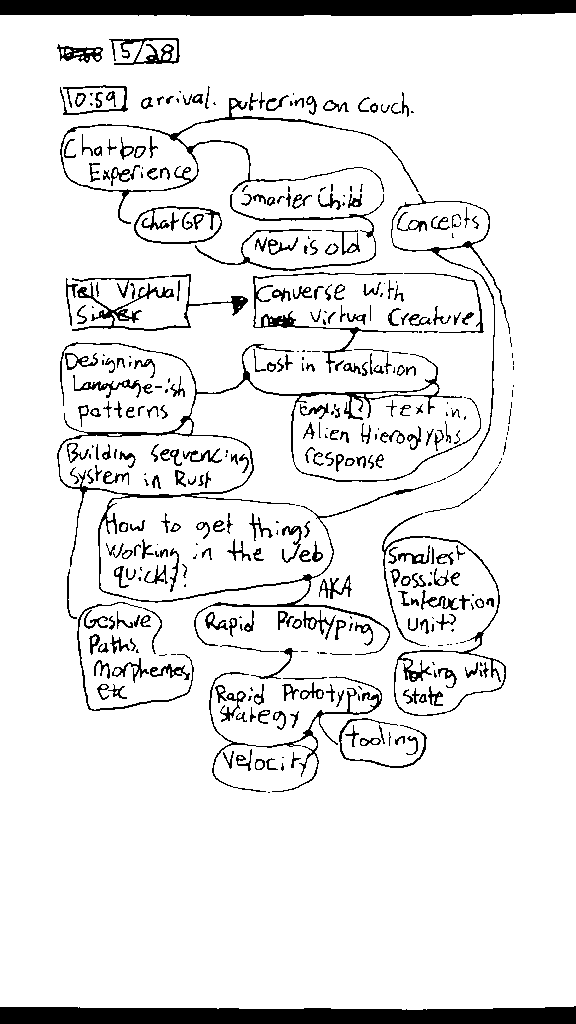 5/28
10:59 arrival. puttering on couch.
Chatbot
Experience
Smarter Child
chatGPT
Concepts
New is old
Tell Virtual
Singer
Converse with
Virtual Creature
Designing
Language-ish
patterns
Lost in translation
English(?) text in,
Alien Hieroglyphs
response
Building Sequencing
System in Rust
How to get things
working in the web
quickly?
Smallest
Possible
Interaction
unit?
AKA
Gesture
Paths,
Morphemes,
etc
Rapid Prototyping
Poking with
State
Rapid Prototyping
Strategy
tooling
Velocity